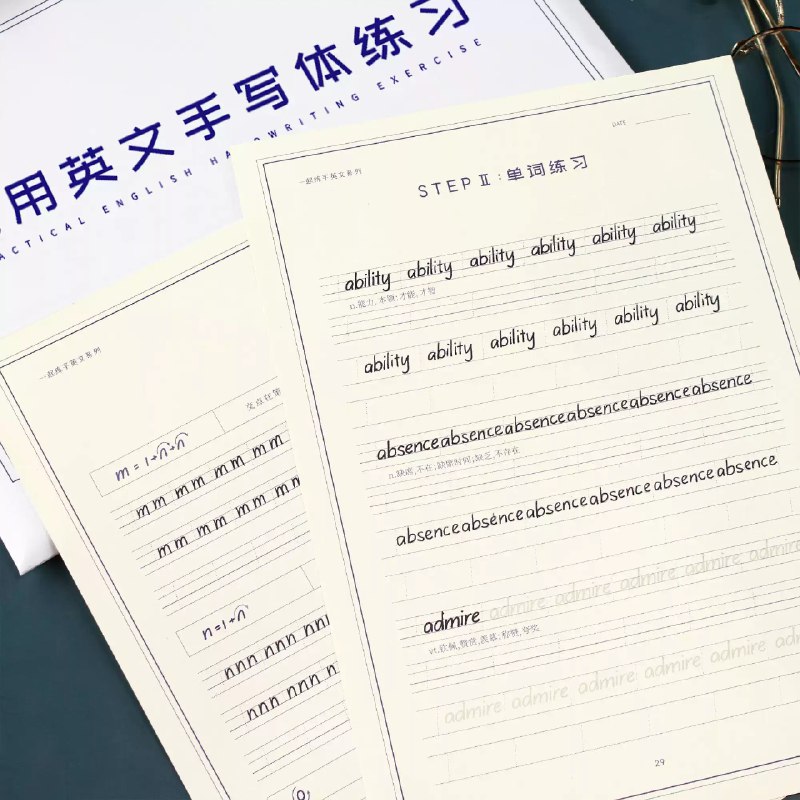 用英文手写体练习
ACTICAL ENGLISH HANDWRITING EXERCISE
一起练字英文系列
DATE
STEP II:单词练习
ability ability ability ability ability ability
n.能力,本领;才能,才智
ability ability ability ability ability ability
absence absence absence absence absence absence
n.缺席,不在;缺席时间;缺乏,不存在
absence absence absence absence absence absence
admire admire admire admire admire admire
vt.钦佩,赞赏,羡慕;称赞,夸奖
admire admire admire admire admire
29
一起练字英文系列
m = 1+n+n
mm mm mm mm
mm mm mm
n=1+n
nnn nnn
nnn nnn